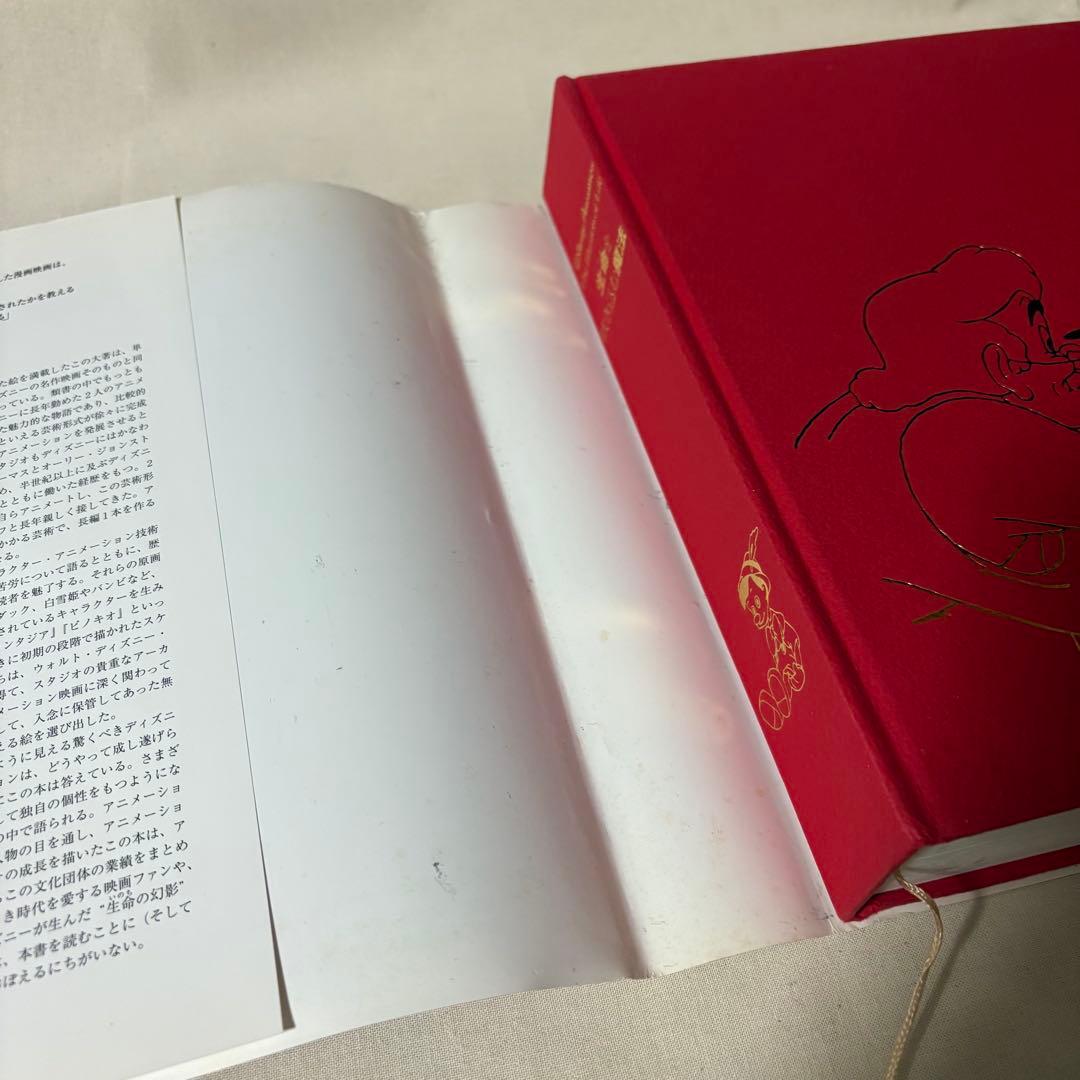 した漫画映画は、
されたかを教える
る」
た絵を満載したこの大著は、単
ズニーの名作映画そのものと同
っている。類書の中でもっとも
ニーに長年勤めた2人のアニメ
た魅力的な物語であり、比較的
といえる芸術形式が徐々に完成
アニメーションを発展させると
タジオもディズニーにはかなわ
ーマスとオーリー・ジョンスト
め、半世紀以上に及ぶディズニ
とともに働いた経歴をもつ。2
自らアニメートし、この芸術形
フと長年親しく接してきた。ア
かかる芸術で、長編1本を作る
せる。
ラクター・アニメーション技術
苦労について語るとともに、歴
読者を魅了する。それらの原画
ダック、白雪姫やバンビなど、
されているキャラクターを生み
ンタジア』『ピノキオ』といっ
きに初期の段階で描かれたスケ
ちは、ウォルト・ディズニー・
得て、スタジオの貴重なアーカ
メーション映画に深く関わって
して、入念に保管してあった無
える絵を選び出した。
ように見える驚くべきディズニ
ョンは、どうやって成し遂げら
にこの本は答えている。さまざ
して独自の個性をもつようにな
の中で語られる。アニメーショ
人物の目を通し、アニメーショ
ーの成長を描いたこの本は、ア
るこの文化団体の業績をまとめ
き時代を愛する映画ファンや、
ズニーが生んだ“生命の幻影”
いのち
、本書を読むことに（そして
おぼえるにちがいない。